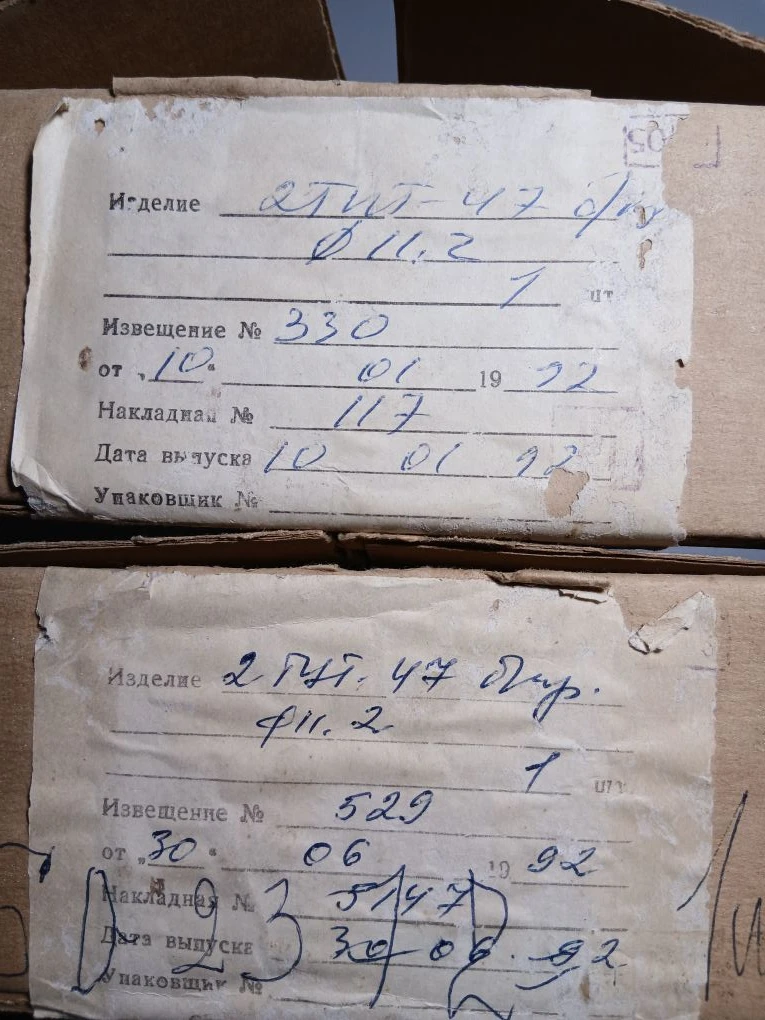 05
Изделие 2ТИТ-47 б/кор
фп. 2
1 шт
Извещение № 330
от „10" 01 1992
Накладная № 117
Дата выпуска 10 01 92
Упаковщик №
Изделие 2 ТИТ. 47
фп. 2
1 шт
Извещение № 529
от „30" 06 1992
Накладная № 5147
Дата выпуска 30 06. 92
Упаковщик №